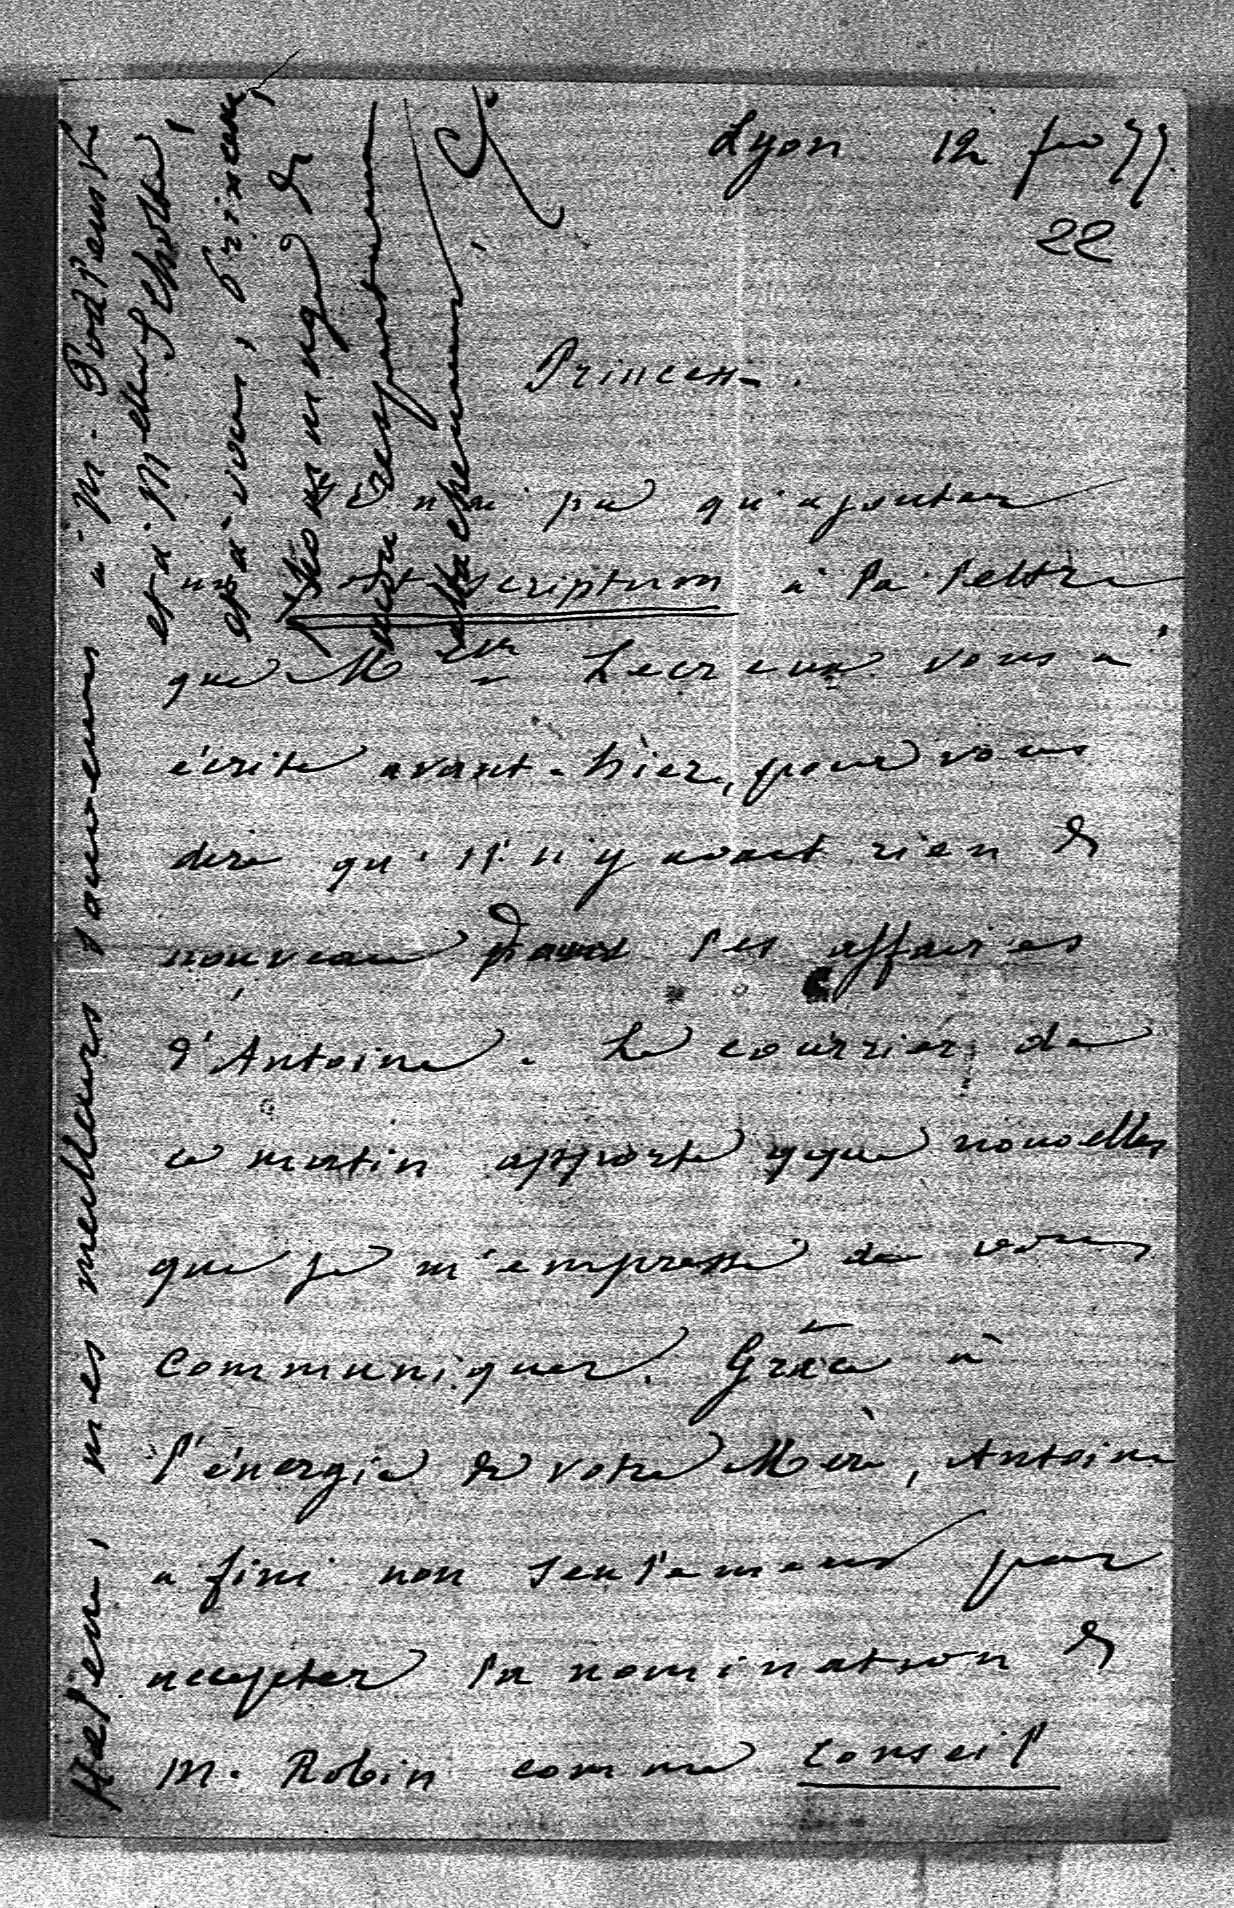 Lyon 12 fev 77.
22
Princesse.
Je n'ai pu qu'ajouter
un post scriptum à la lettre
que Melle Lecreux vous a
écrite avant-hier, pour vous
dire qu'il n'y avait rien de
nouveau dans les affaires
d'Antoine. Le courrier de
ce matin apporte qque nouvelles
que je m'empresse de vous
communiquer. Grâce à
l'énergie de votre Mère, Antoine
a fini non seulement par
accepter la nomination de
M. Robin comme conseil
mes meilleurs souvenirs à M.
et à Melle
et à vous, Princesse,
l'hommage de
mon respectueux
attachement.